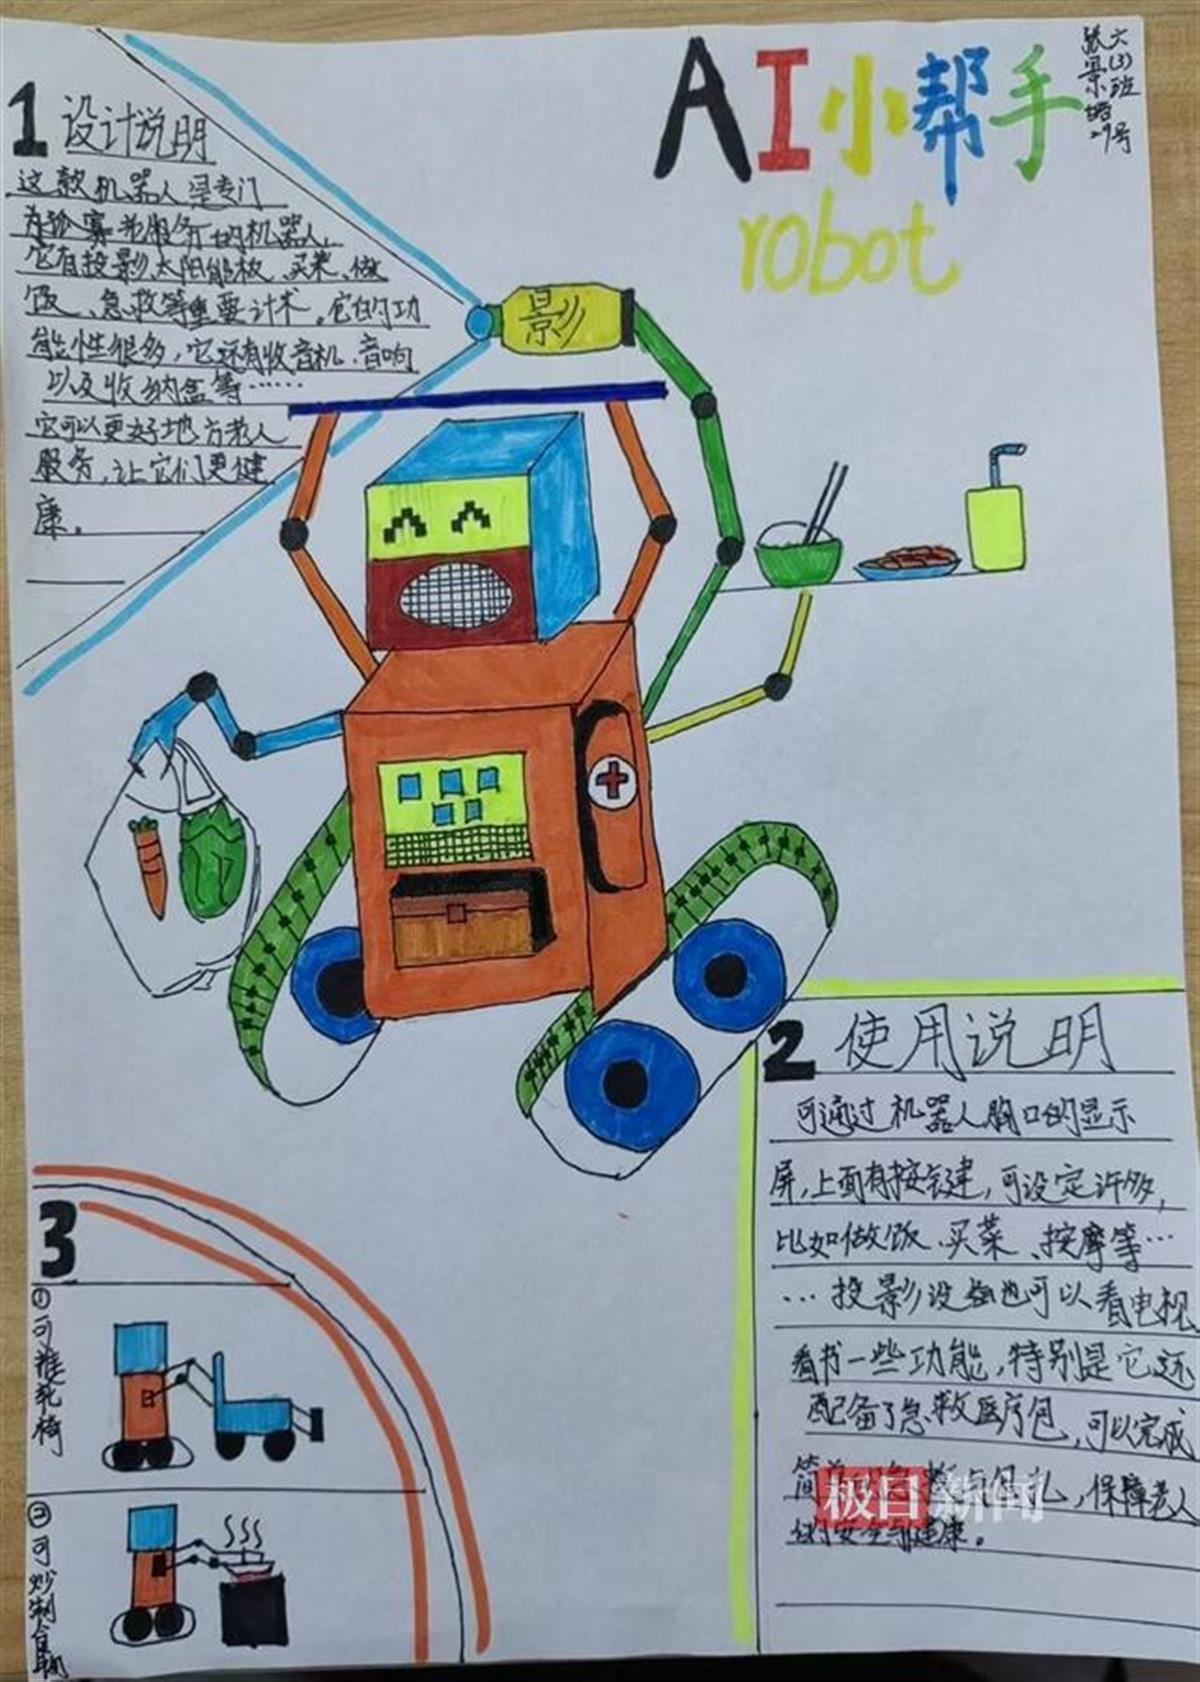 AI小帮手
robot
六(3)班
29号
1 设计说明
这款机器人是专门
为 寡老服务的机器人,
它有投影、太阳能板、买菜、做
饭、急救等重要计术。它的功
能性很多,它还有收音机、音响
以及收纳盒等……
它可以更好地为老人
服务,让它们更健
康。
影
2 使用说明
可通过机器人胸口的显示
屏,上面有按键,可设定许多,
比如做饭、买菜、按摩等…
…投影设备也可以看电视
看书一些功能,特别是它还
配备了急救医疗包,可以完成
简单 ,保障老人
的安全与健康。
极目新闻
3
①可推轮椅
②可炒制食物